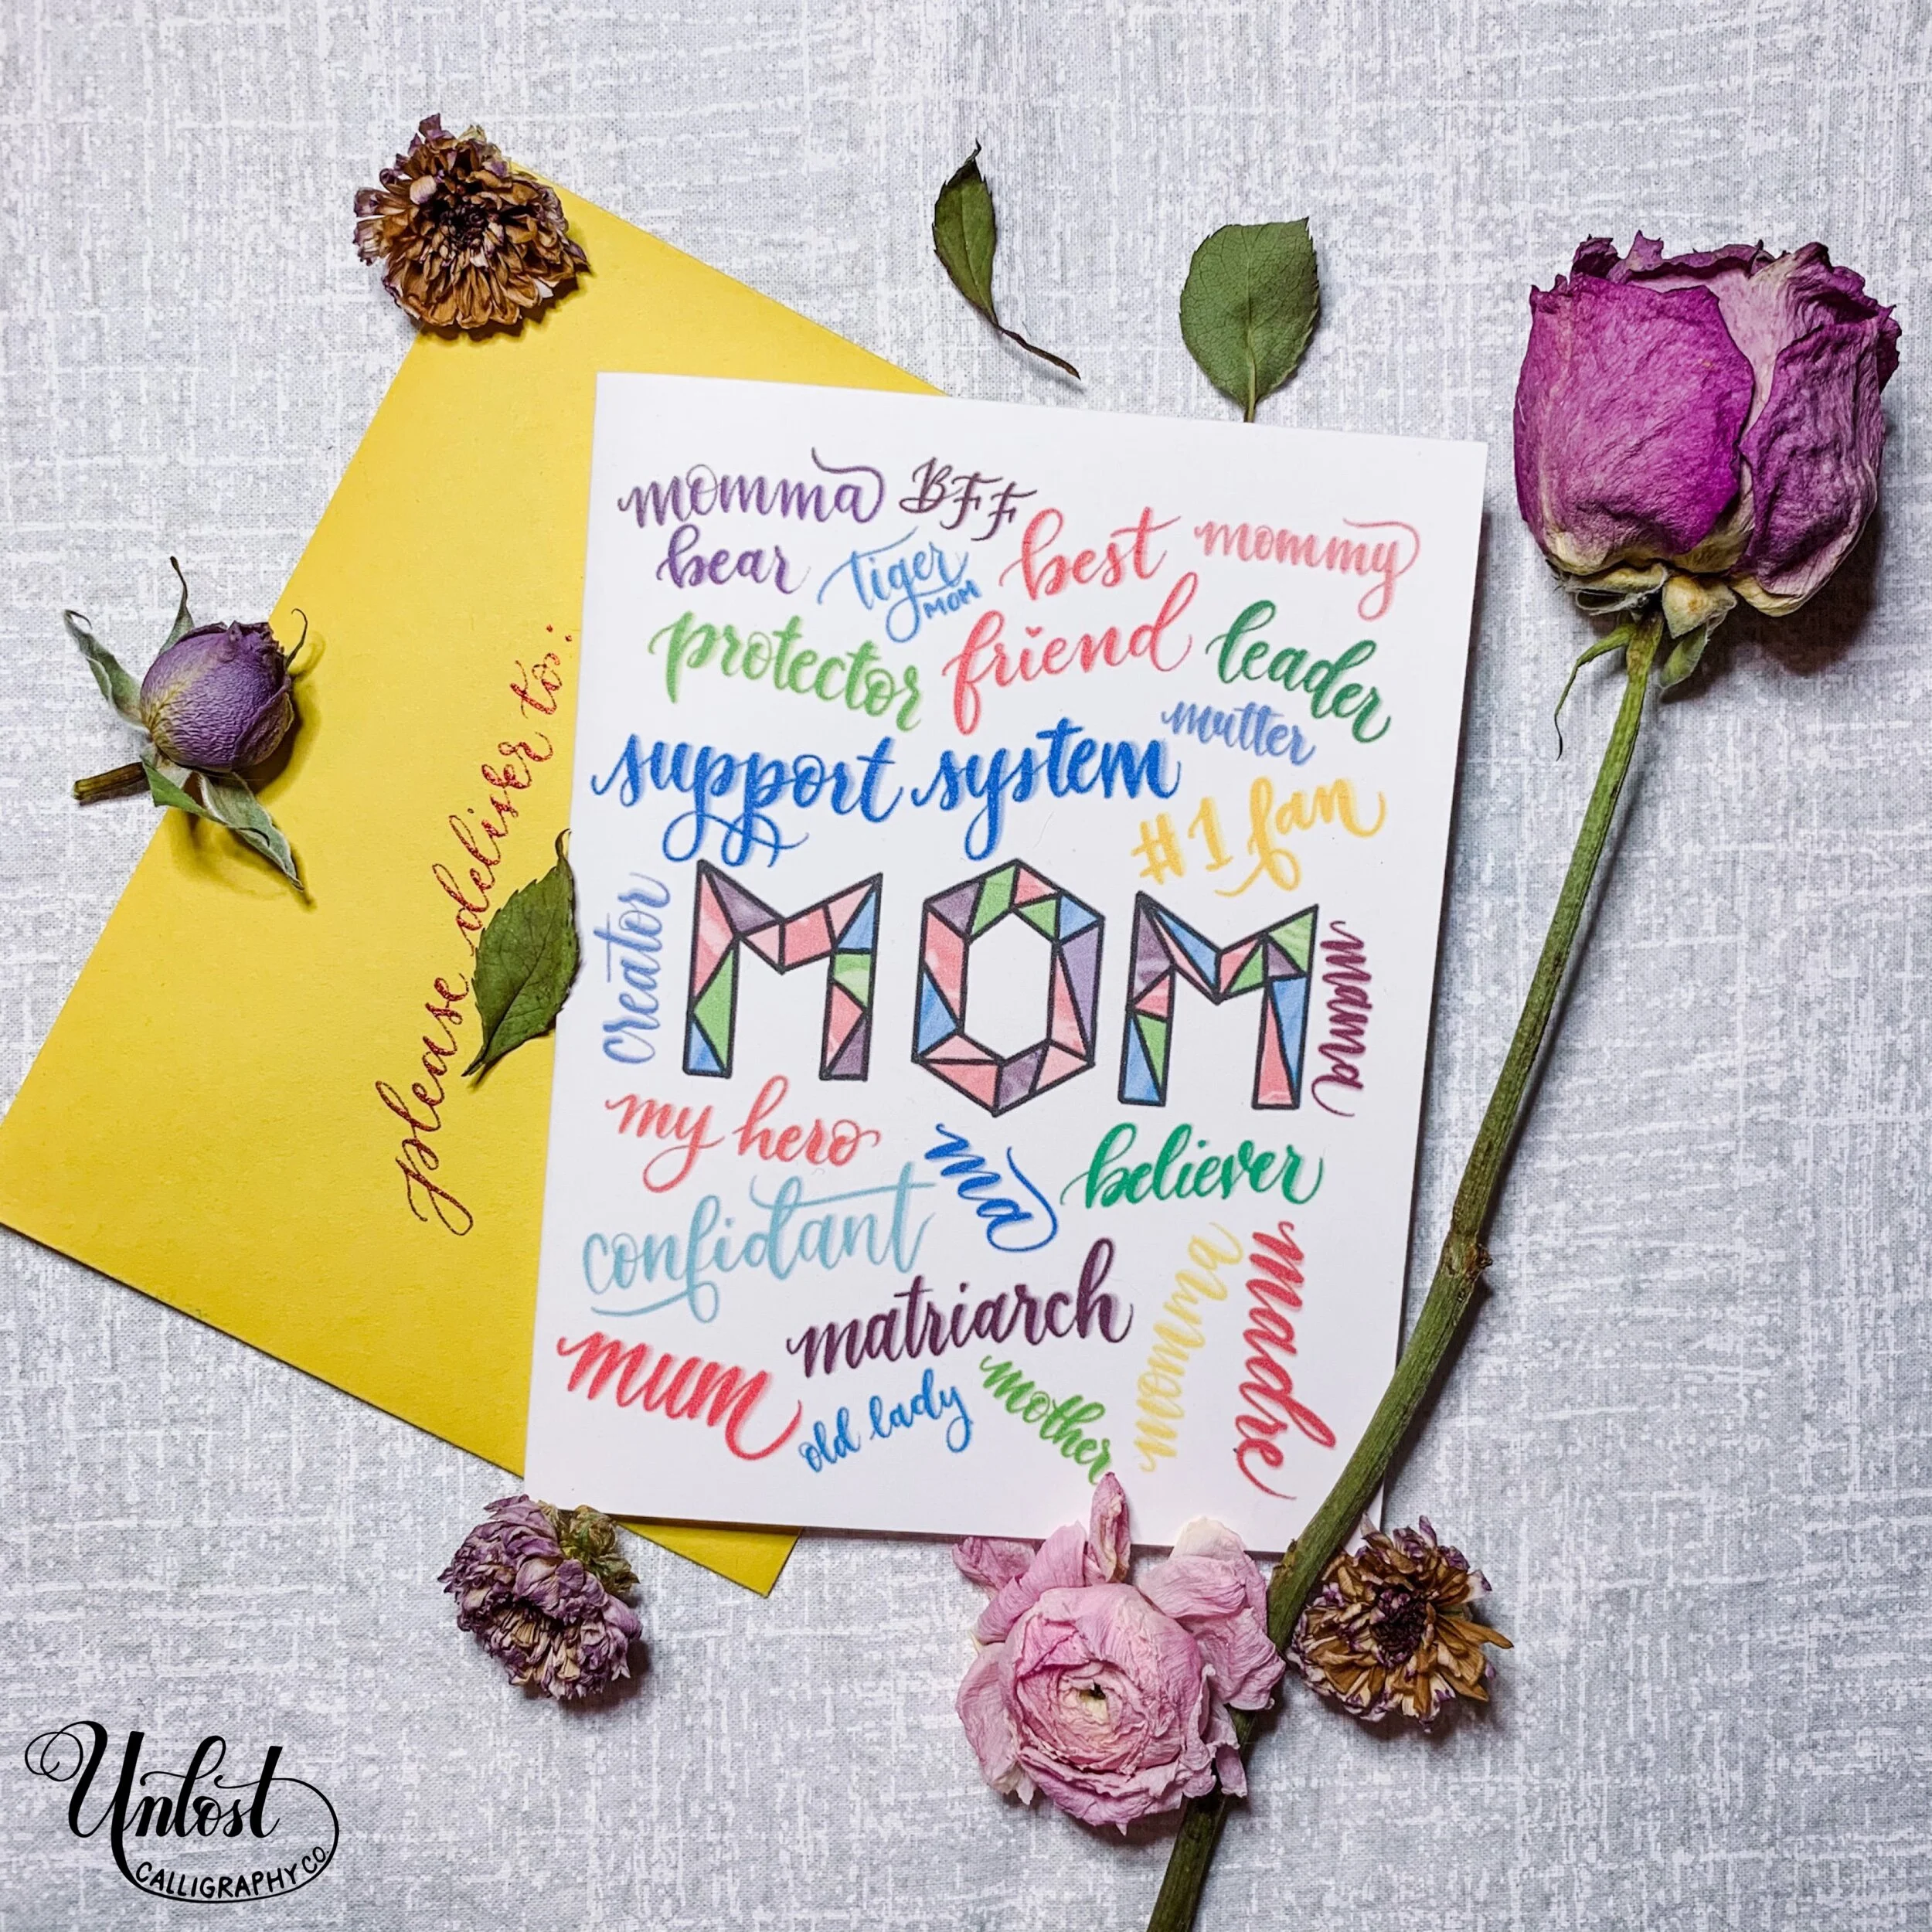 momma
bear
BFF
tiger
MOM
best
friend
mommy
protector
leader
support system
mutter
#1 fan
creator
MOM
mama
my hero
ma
believer
confidant
matriarch
momma
madre
mum
old lady
mother
please deliver to:
Unlost
CALLIGRAPHY CO.